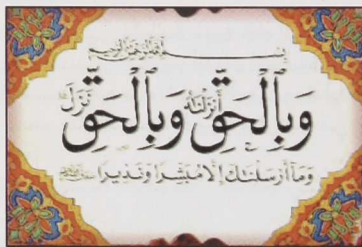 بسم الله الرحمن الرحيم
وَبِالْحَقِّ أَنزَلْنَاهُ وَبِالْحَقِّ نَزَلَ
وَمَا أَرْسَلْنَاكَ إِلَّا مُبَشِّرًا وَنَذِيرًا